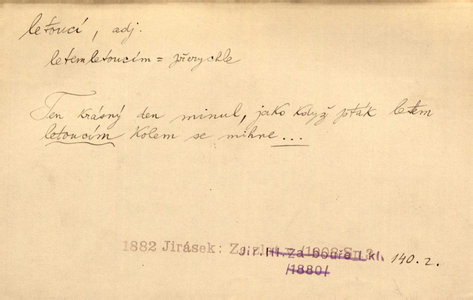 letoucí, adj.
letem letoucím = převychle
Ten krásný den minul, jako když pták letem
letoucím kolem se mihne...
1882 Jirásek:
Jir. Hl. Za bouře I kl. 140. 2.
/1880/